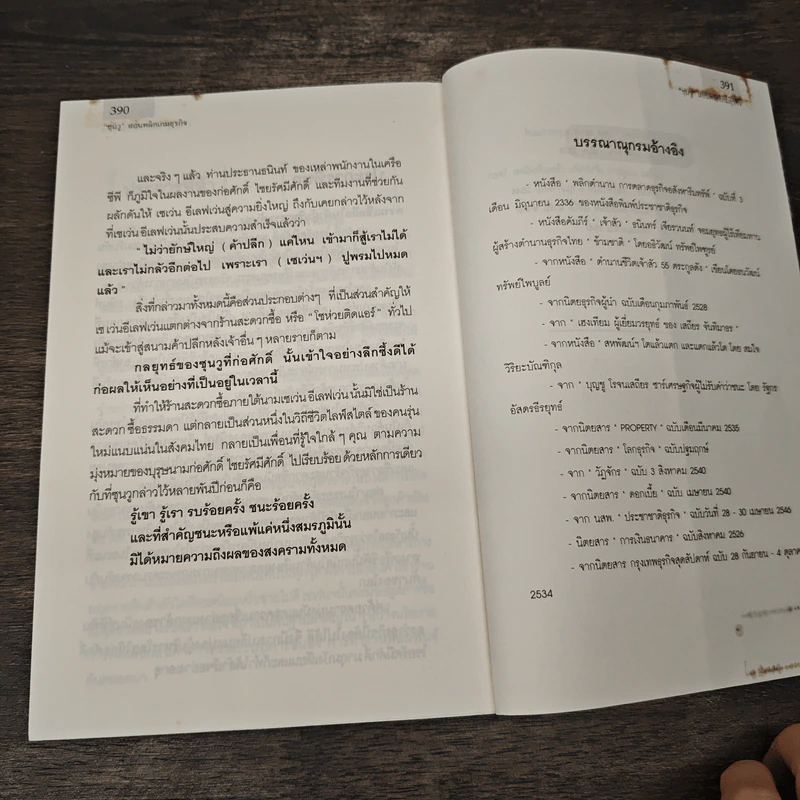 390
"ซุนวู" หยิบพลิกเกมธุรกิจ
และจริง ๆ แล้ว ท่านประธานธนินท์ ของเหล่าพนักงานในเครือ
ซีพี ก็ภูมิใจในผลงานของก่อศักดิ์ ไชยรัศมีศักดิ์ และทีมงานที่ช่วยกัน
ผลักดันให้ เซเว่น อีเลฟเว่นสู่ความยิ่งใหญ่ ถึงกับเคยกล่าวไว้หลังจาก
ที่เซเว่น อีเลฟเว่นนั้นประสบความสำเร็จแล้วว่า
" ไม่ว่ายักษ์ใหญ่ ( ค้าปลีก ) แค่ไหน เข้ามาก็สู้เราไม่ได้
และเราไม่กลัวอีกต่อไป เพราะเรา ( เซเว่นฯ ) ปูพรมไปหมด
แล้ว "
สิ่งที่กล่าวมาทั้งหมดนี้คือส่วนประกอบต่างๆ ที่เป็นส่วนสำคัญให้
เซเว่นอีเลฟเว่นแตกต่างจากร้านสะดวกซื้อ หรือ "โชห่วยติดแอร์" ทั่วไป
แม้จะเข้าสู่สนามค้าปลีกหลังเจ้าอื่น ๆ หลายรายก็ตาม
กลยุทธ์ของซุนวูที่ก่อศักดิ์ นั้นเข้าใจอย่างลึกซึ้งดีได้
ก่อผลให้เห็นอย่างที่เป็นอยู่ในเวลานี้
ที่ทำให้ร้านสะดวกซื้อภายใต้นามเซเว่น อีเลฟเว่น นั้นมิใช่เป็นร้าน
สะดวก ซื้อธรรมดา แต่กลายเป็นส่วนหนึ่งในวิถีชีวิตไลฟ์สไตล์ ของคนรุ่น
ใหม่แนบแน่นในสังคมไทย กลายเป็นเพื่อนที่รู้ใจใกล้ ๆ คุณ ตามความ
มุ่งหมายของบุรุษนามก่อศักดิ์ ไชยรัศมีศักดิ์ ไปเรียบร้อย ด้วยหลักการเดียว
กับที่ซุนวูกล่าวไว้หลายพันปีก่อนก็คือ
รู้เขา รู้เรา รบร้อยครั้ง ชนะร้อยครั้ง
และที่สำคัญชนะหรือแพ้แค่หนึ่งสมรภูมินั้น
มิได้หมายความถึงผลของสงครามทั้งหมด
391
บรรณาณุกรมอ้างอิง
- หนังสือ " พลิกตำนาน การตลาดธุรกิจอสังหาริมทรัพย์ " ฉบับที่ 3
เดือน มิถุนายน 2336 ของหนังสือพิมพ์ประชาชาติธุรกิจ
- หนังสือคัมภีร์ " เจ้าสัว " ธนินทร์ เจียรวนนท์ จอมยุทธผู้ไร้เทียมทาน
ผู้สร้างตำนานธุรกิจไทย " ข้ามชาติ " โดยธิวัฒน์ ทรัพย์ไพฑูรย์
- จากหนังสือ " ตำนานชีวิตเจ้าสัว 55 ตระกูลดัง " เขียนโดยธนวัฒน์
ทรัพย์ไพบูลย์
- จากนิตยธุรกิจผู้นำ ฉบับเดือนกุมภาพันธ์ 2528
- จาก " เฮงเทียม ผู้เยี่ยมวรยุทธ์ ของ เสถียร จันทิมาธร "
- จากหนังสือ " สหพัฒน์ฯ โตแล้วแตก และแตกแล้วโต โดย สมใจ
วิริยะบัณฑิกุล
- จาก " บุญชู โรจนเสถียร ซาร์เศรษฐกิจผู้ไม่รับคำว่าชนะ โดย รัฐกร
อัสดรธีรยุทธ์
- จากนิตยสาร " PROPERTY " ฉบับเดือนมีนาคม 2535
- จากนิตยสาร " โลกธุรกิจ " ฉบับปฐมฤกษ์
- จาก " วัฏจักร " ฉบับ 3 สิงหาคม 2540
- จากนิตยสาร " ดอกเบี้ย " ฉบับ เมษายน 2540
- จาก นสพ. " ประชาชาติธุรกิจ " ฉบับวันที่ 28 - 30 เมษายน 2546
- นิตยสาร " การเงินธนาคาร " ฉบับสิงหาคม 2526
- จากนิตยสาร กรุงเทพธุรกิจสุดสัปดาห์ ฉบับ 28 กันยายน - 4 ตุลาค
2534